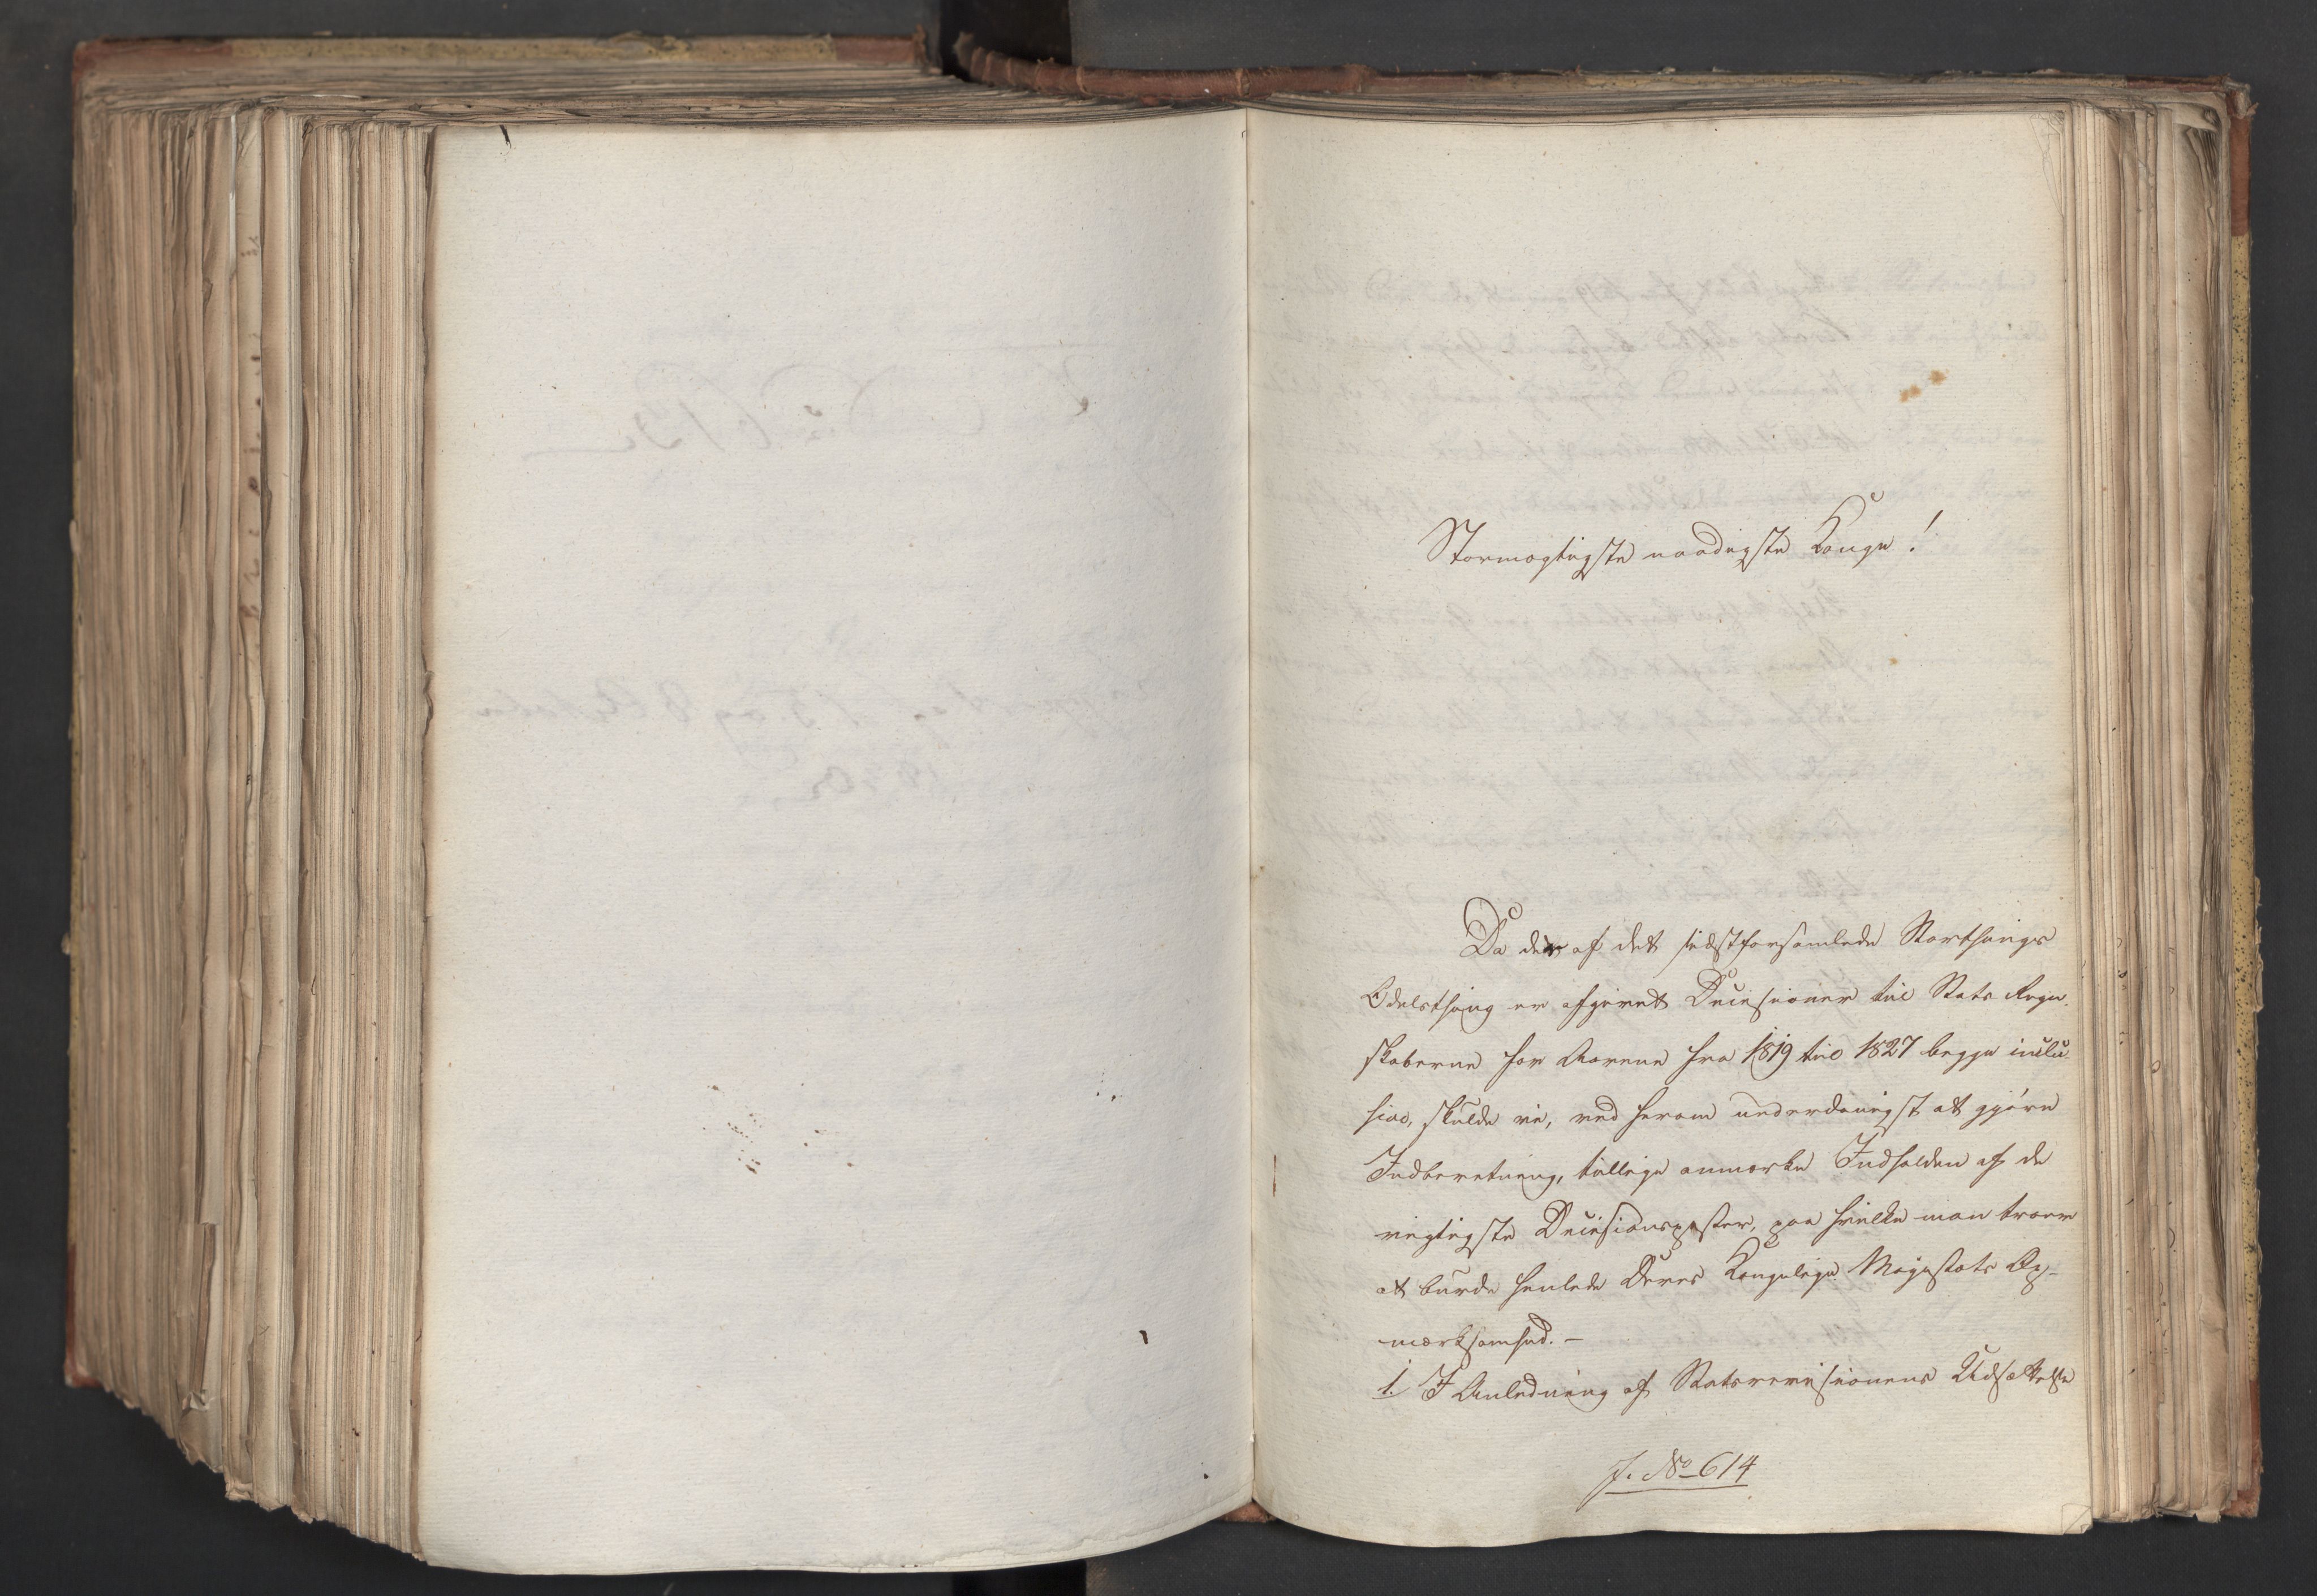 Stormægtigste naadigste Konge!
Da der af det sidstforsamlede Storthings
Odelsthing er afgivet Decisioner til Stats Regn-
skaberne for Aarene fra 1819 til 1827 begge inclu-
sive, skulde vi, ved herom underdanigst at gjøre
Indberetning, tillige anmærke Indholden af de
vigtigste Decisionsposter, paa hvilke man troer
at burde henlede Deres Kongelige Majestæts Op-
mærksomhed. –
1. I Anledning af Statsrevisionens Udsættelse
J. No 614